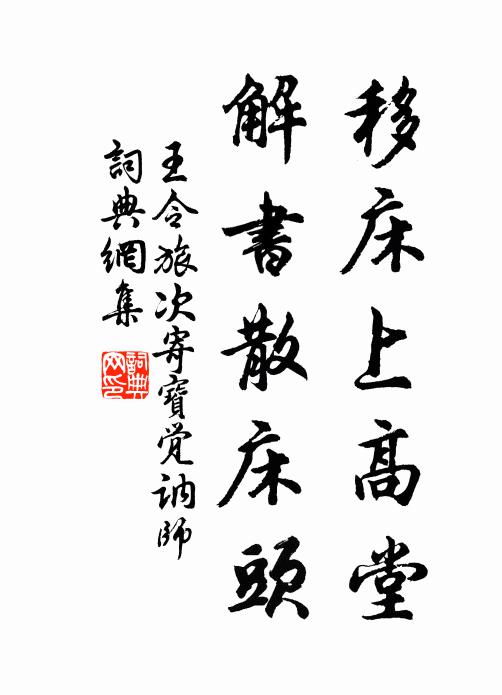 移床上高堂
解書散床頭
王令旅次寄寶覺訥師
詞典網集
詞典
網印